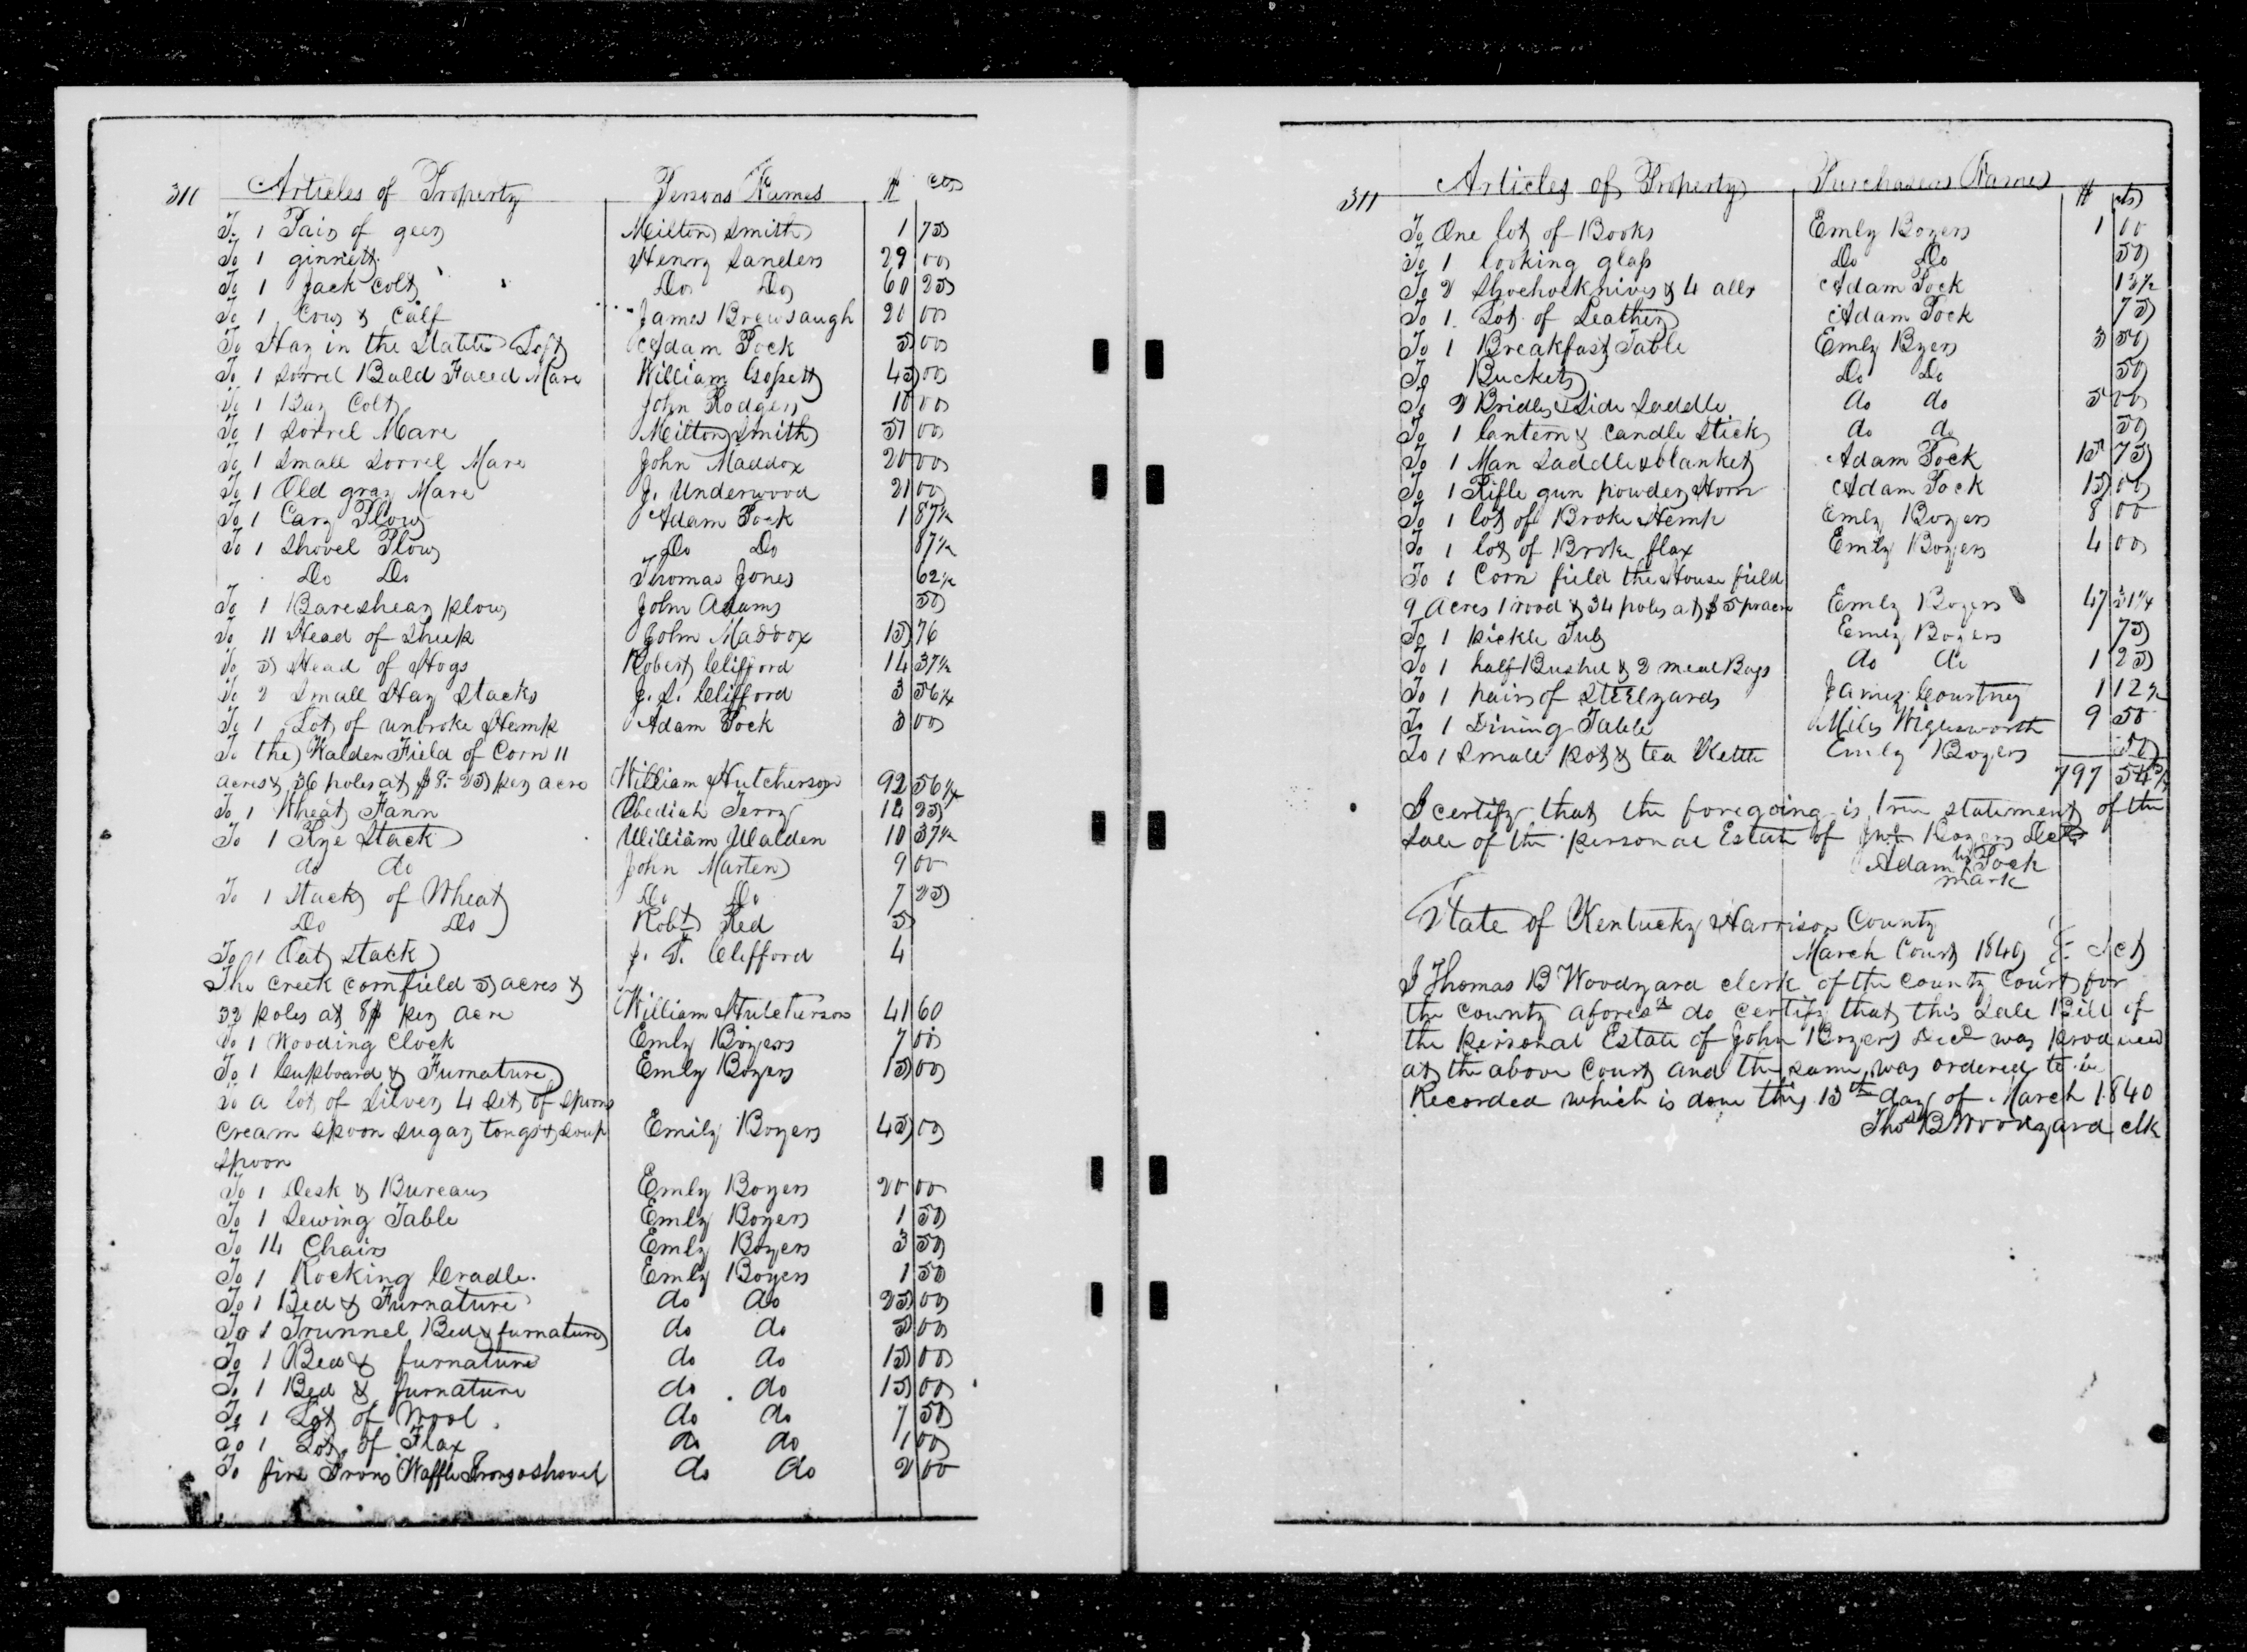 311 Articles of Property Persons Names $ cts
To 1 Pair of geers Milton Smith 1 75
To 1 ginnett Henry Sanders 29 00
To 1 Jack Colt Do Do 60 25
To 1 Cow & Calf James Brewsaugh 20 00
To Hay in the Stable Loft Adam Pock 5 00
To 1 Sorrel Bald Faced Mare William Gossett 45 00
To 1 Bay Colt John Rodgers 10 00
To 1 Sorrel Mare Milton Smith 51 00
To 1 Small Sorrel Mare John Maddox 20 00
To 1 Old gray Mare J. Underwood 21 00
To 1 Cary Plow Adam Pock 1 87½
To 1 Shovel Plow Do Do 87½
Do Do Thomas Jones 62½
To 1 Bareshear plow John Adams 50
To 11 Head of Sheep John Maddox 15 76
To 5 Head of Hogs Robert Clifford 14 37½
To 2 Small Hay Stacks J. S. Clifford 3 56¼
To 1 Lot of unbroke Hemp Adam Pock 3 00
To the Walden Field of Corn 11
acres & 36 poles at $8.25 per acre William Hutcherson 92 56¼
To 1 Wheat Fann Obediah Terry 14 25
To 1 Rye Stack William Walden 10 37½
do do John Marten 9 00
To 1 Stack of Wheat Do Do 7 25
Do Do Robt Red 5
To 1 Oat Stack J. S. Clifford 4
The creek cornfield 5 acres &
32 poles at 8$ per acre William Hutcherson 41 60
To 1 Wooding Clock Emly Boyers 7 00
To 1 Cupboard & Furnature Emly Boyers 15 00
To a lot of Silver 4 Sets of Spoons
cream spoon sugar tongs & soup Emily Boyers 45 00
spoon
To 1 Desk & Bureaus Emly Boyers 20 00
To 1 Sewing Table Emly Boyers 1 50
To 14 Chairs Emly Boyers 3 50
To 1 Rocking Cradle. Emly Boyers 1 50
To 1 Bed & Furnature do do 25 00
To 1 Trunnel Bed & furnature do do 5 00
To 1 Bed & furnature do do 15 00
To 1 Bed & furnature do do 15 00
To 1 Lot of Wool do do 7 50
To 1 Lot of Flax do do 1 00
To fire Irons Waffle Irons & shovel do do 2 00
311 Articles of Property Purchasers Names $ cts
To One lot of Books Emly Boyers 1 00
To 1 looking glass Do Do 50
To 2 Shoehocknives & 4 alls Adam Pock 12½
To 1 Lot of Leather Adam Pock 75
To 1 Breakfast Table Emly Byers 3 50
To Buckets Do Do 50
To 2 Bridles & Side Saddle do do 5 00
To 1 lantern & Candle Stick do do 50
To 1 Man Saddle & blanket Adam Pock 15 75
To 1 Rifle gun powder Horn Adam Pock 15 00
To 1 lot of Broke Hemp Emly Boyers 8 00
To 1 lot of Broke flax Emly Boyers 4 00
To 1 Corn field the House field
9 Acres 1 rood & 34 poles at $5 pr acre Emly Boyers 47 31¼
To 1 pickle Tub Emly Boyers 75
To 1 half Bushel & 2 meal Bags do do 1 25
To 1 pair of Steelyards James Courtney 1 12½
To 1 Dining Table Miles Wiglesworth 9 50
To 1 Small Pot & tea Kettle Emly Boyers 50
797 54
I certify that the foregoing is true statement of the
Sale of the personal Estate of Jno Boyers Decd
his
Adam X Pock
mark
State of Kentucky Harrison County
March Court 1840 Sct
I Thomas B Woodyard clerk of the county court for
the county aforesd do certify that this Sale Bill of
the personal Estate of John Boyers Decd was produced
at the above Court and the same was ordered to be
Recorded which is done this 13th day of March 1840
Thos B Woodyard clk